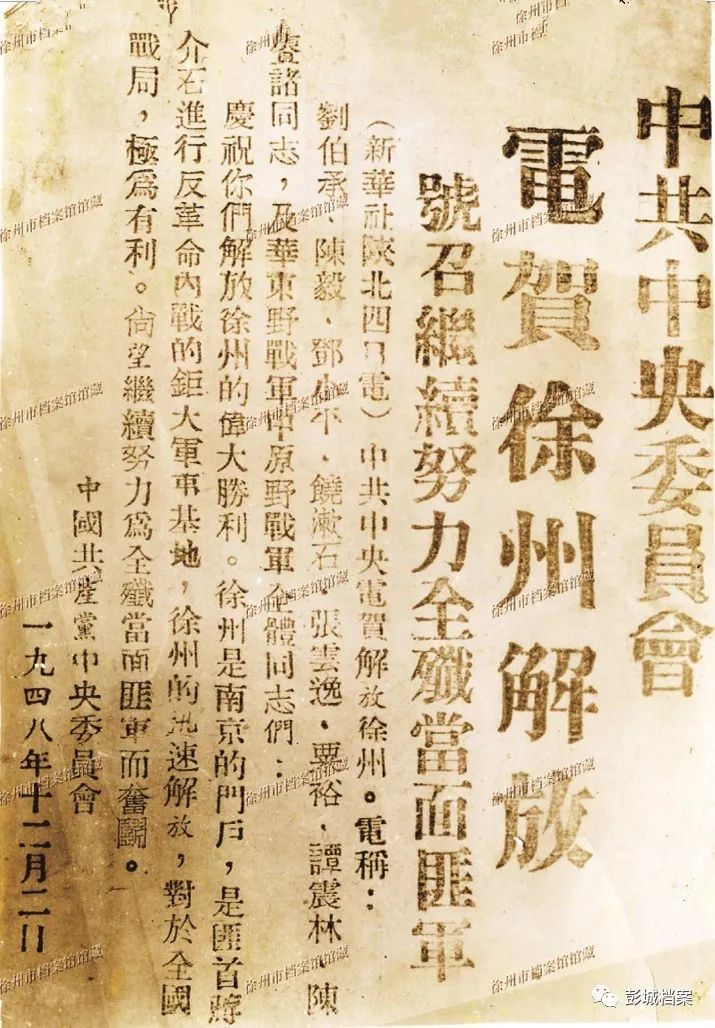 中共中央委員會
電賀徐州解放
號召繼續努力全殲當面匪軍
（新華社陝北四日電）中共中央電賀解放徐州。電稱：
劉伯承、陳毅、鄧小平、饒漱石、張雲逸、粟裕、譚震林、陳
賡諸同志，及華東野戰軍中原野戰軍全體同志們：
慶祝你們解放徐州的偉大勝利。徐州是南京的門戶，是匪首蔣
介石進行反革命內戰的鉅大軍事基地，徐州的迅速解放，對於全國
戰局，極爲有利。尙望繼續努力爲全殲當面匪軍而奮鬭。
中國共產黨中央委員會
一九四八年十二月二日
徐州市档案馆馆藏
彭城档案